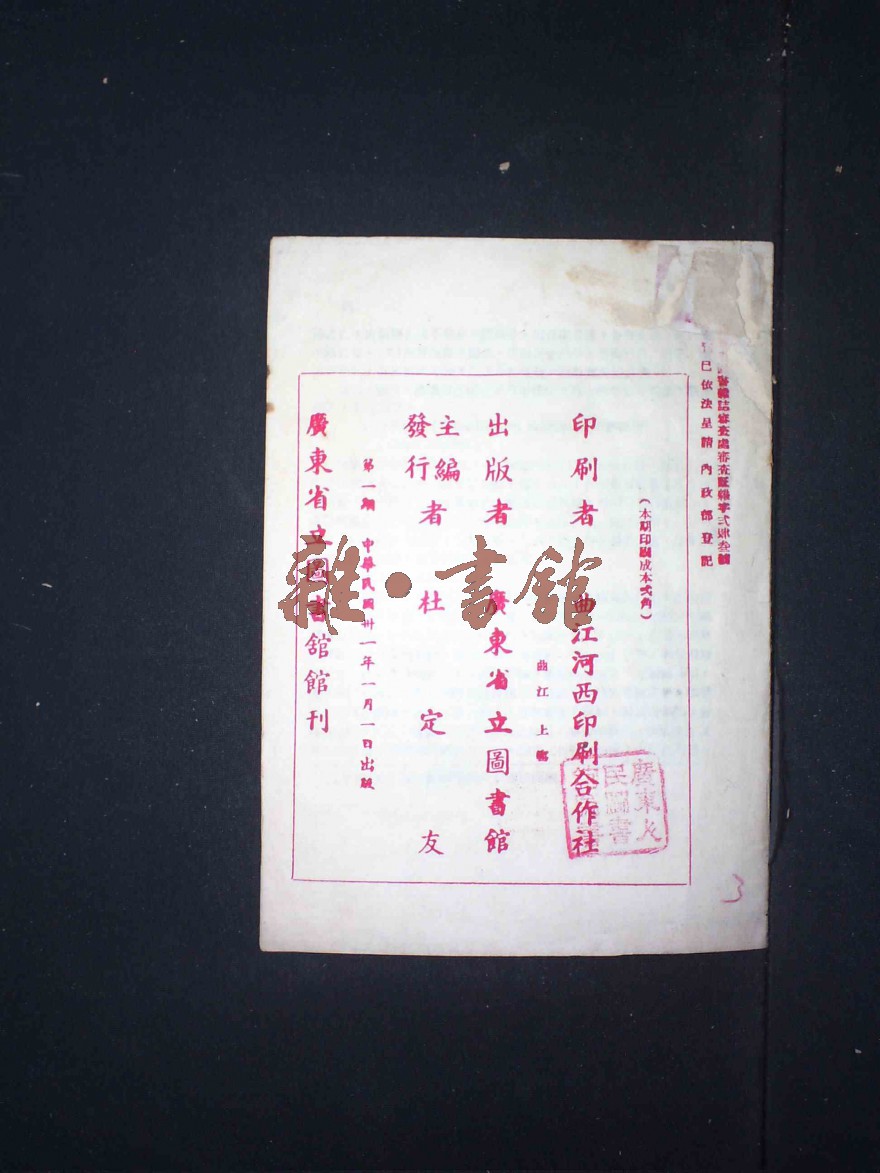 書雜誌審查處審查証雜字弍肆叁號
已依法呈請內政部登記
（本期印刷成本弍角）
印刷者 曲江河西印刷合作社
曲江上窰
出版者 廣東省立圖書館
主編
發行者 杜定友
第一期 中華民國卅一年一月一日出版
廣東省立圖書館館刊
雜·書館
廣東人
民圖書
3